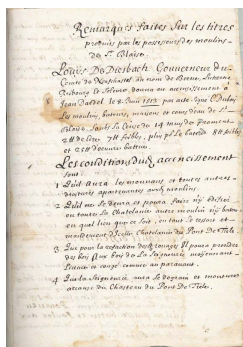 Remarques faites Sur les titres
produis par les possesseurs des moulins
de St Blaise.
Louÿs De Diesbach Gouverneur du
Comté de Neufchastel au nom de Berne, Lucerne
Fribourg et Soleure, donna en accensissement à
Jean Dardel le 8. Juin 1513 par acte signé P.
Les moulins, batteurs, maisons et cours d'eau de St
Blaise, sous la Cense de 14 muys de froment
et 28
Les conditions dud. accensissement
sont.
1 Qu'il aura les mounans et toutes autres
droitures apartenantes auxd. moulins.
2 Qu'il ne se devra et pourra faire nÿ edifier
en toute la Chatelanie autre moulin nÿ batteur
en quel lieu que ce soit, en tout le ressort et
mandement d'icelle Chatelanie du Pont de Thiele.
3 Que pour la refection desd. rouages Il pourra prendre
des boys aux bois de la Seigneurie, moyennant
licence et congé comme au paravant.
4 Que la Seigneurie aura le
avanne du Chasteau du Pont De Tiele.